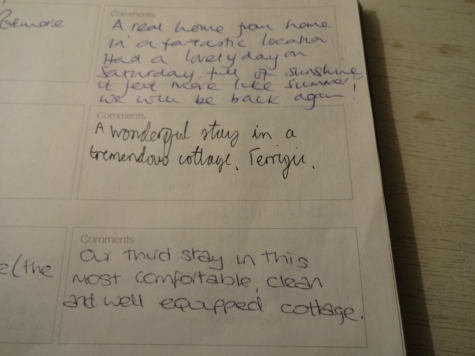 Comments
A real home from home
in a fantastic location
Had a lovely day on
Saturday, full of sunshine
it felt more like summer!
we will be back again.
Comments
A wonderful stay in a
tremendous cottage.
Comments
Our third stay in this
most comfortable, clean
and well equipped cottage.
e(the